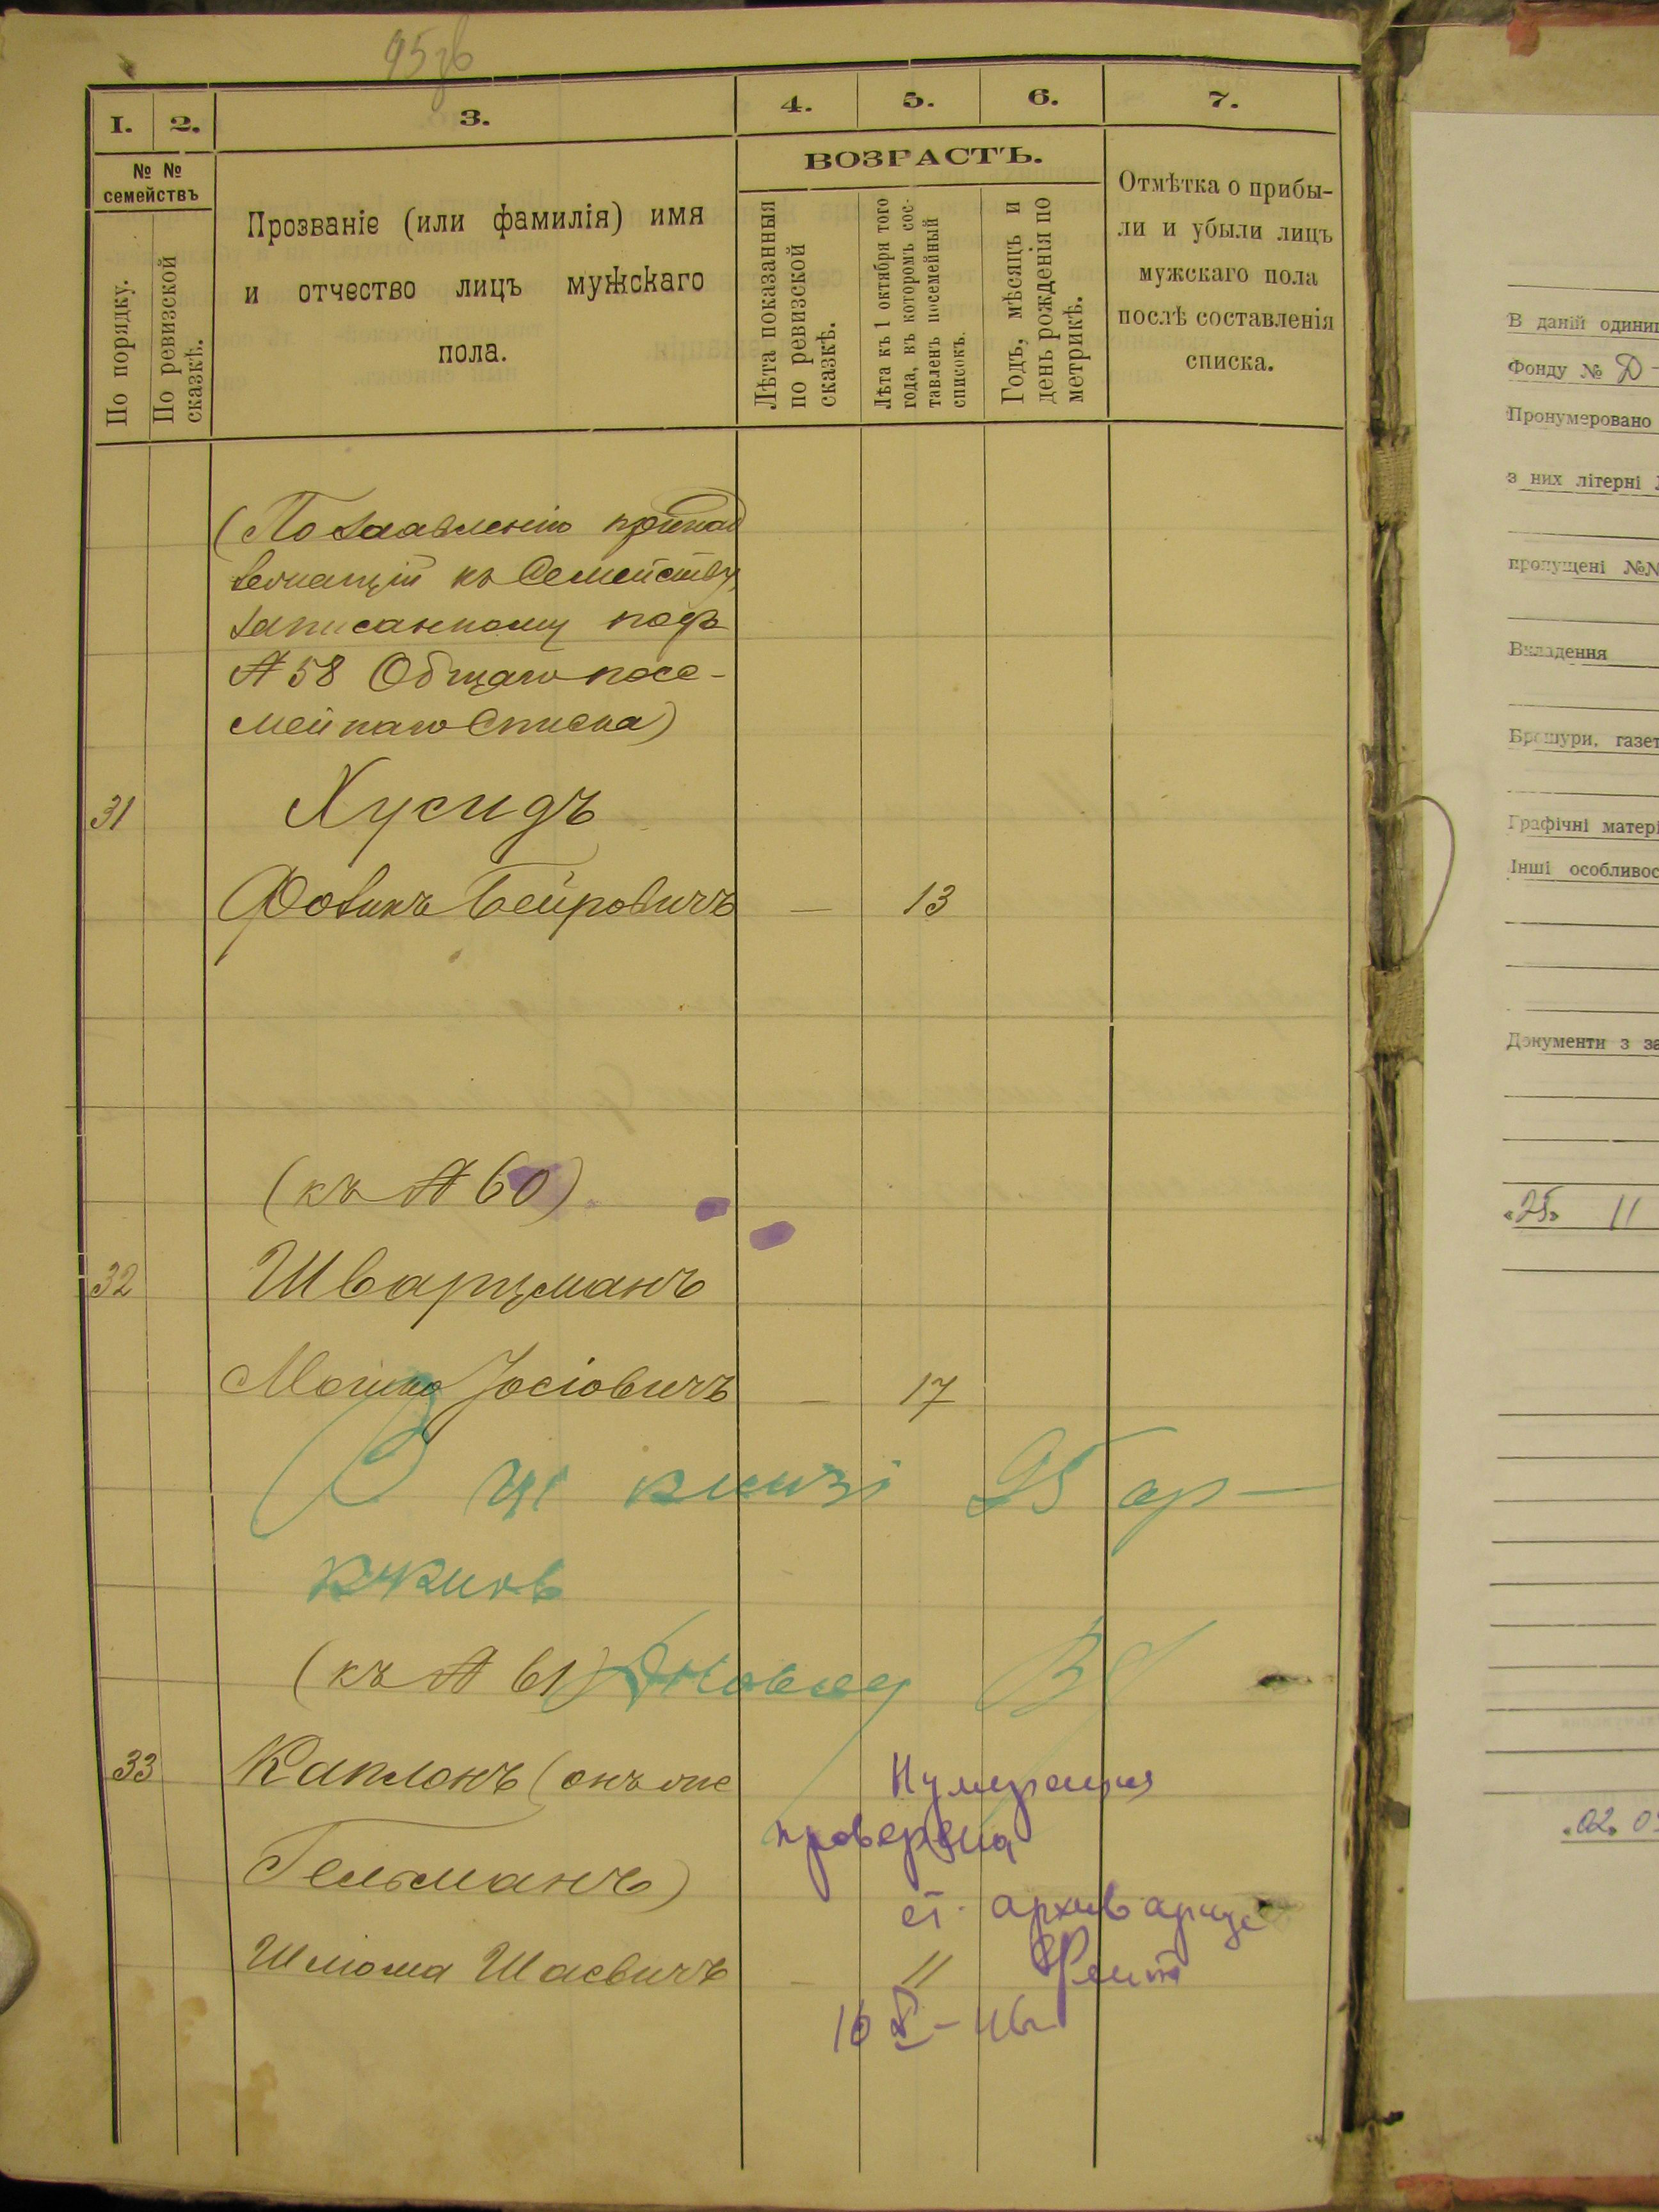 95зв
I. 2. 3. 4. 5. 6. 7.
№ № семействъ
По порядку.
По ревизской сказкѣ.
Прозваніе (или фамилія) имя
и отчество лицъ мужскаго
пола.
ВОЗРАСТЪ.
Лѣта показанныя
по ревизской
сказкѣ.
Лѣта къ 1 октября того
года, въ которомъ сос-
тавленъ посемейный
списокъ.
Годъ, мѣсяцъ и
день рожденія по
метрикѣ.
Отмѣтка о прибы-
ли и убыли лицъ
мужскаго пола
послѣ составленія
списка.
(По заявленію принад
лежащій къ Семейству,
записанному подъ
№ 58 Общаго посе-
мейнаго Списка)
31 Хусидъ
Фовикъ Бейровичъ — 13
(къ № 60)
32 Шварцманъ
Мошко Іосіовичъ — 17
В ці книзі 95 ар-
кушів
(къ № 61)
33 Капланъ (онъ же
Нумерация
проверена
Гельманъ)
ст. архивариус
Шліома Шаевичъ — 11
16 X - 46
В даній одиниц
Фонду № Д-
Пронумеровано
з них літерні
пропущені №№
Вкладення
Брошури, газет
Графічні матері
Інші особливос
Документи з за
«25» 11
«02» 0